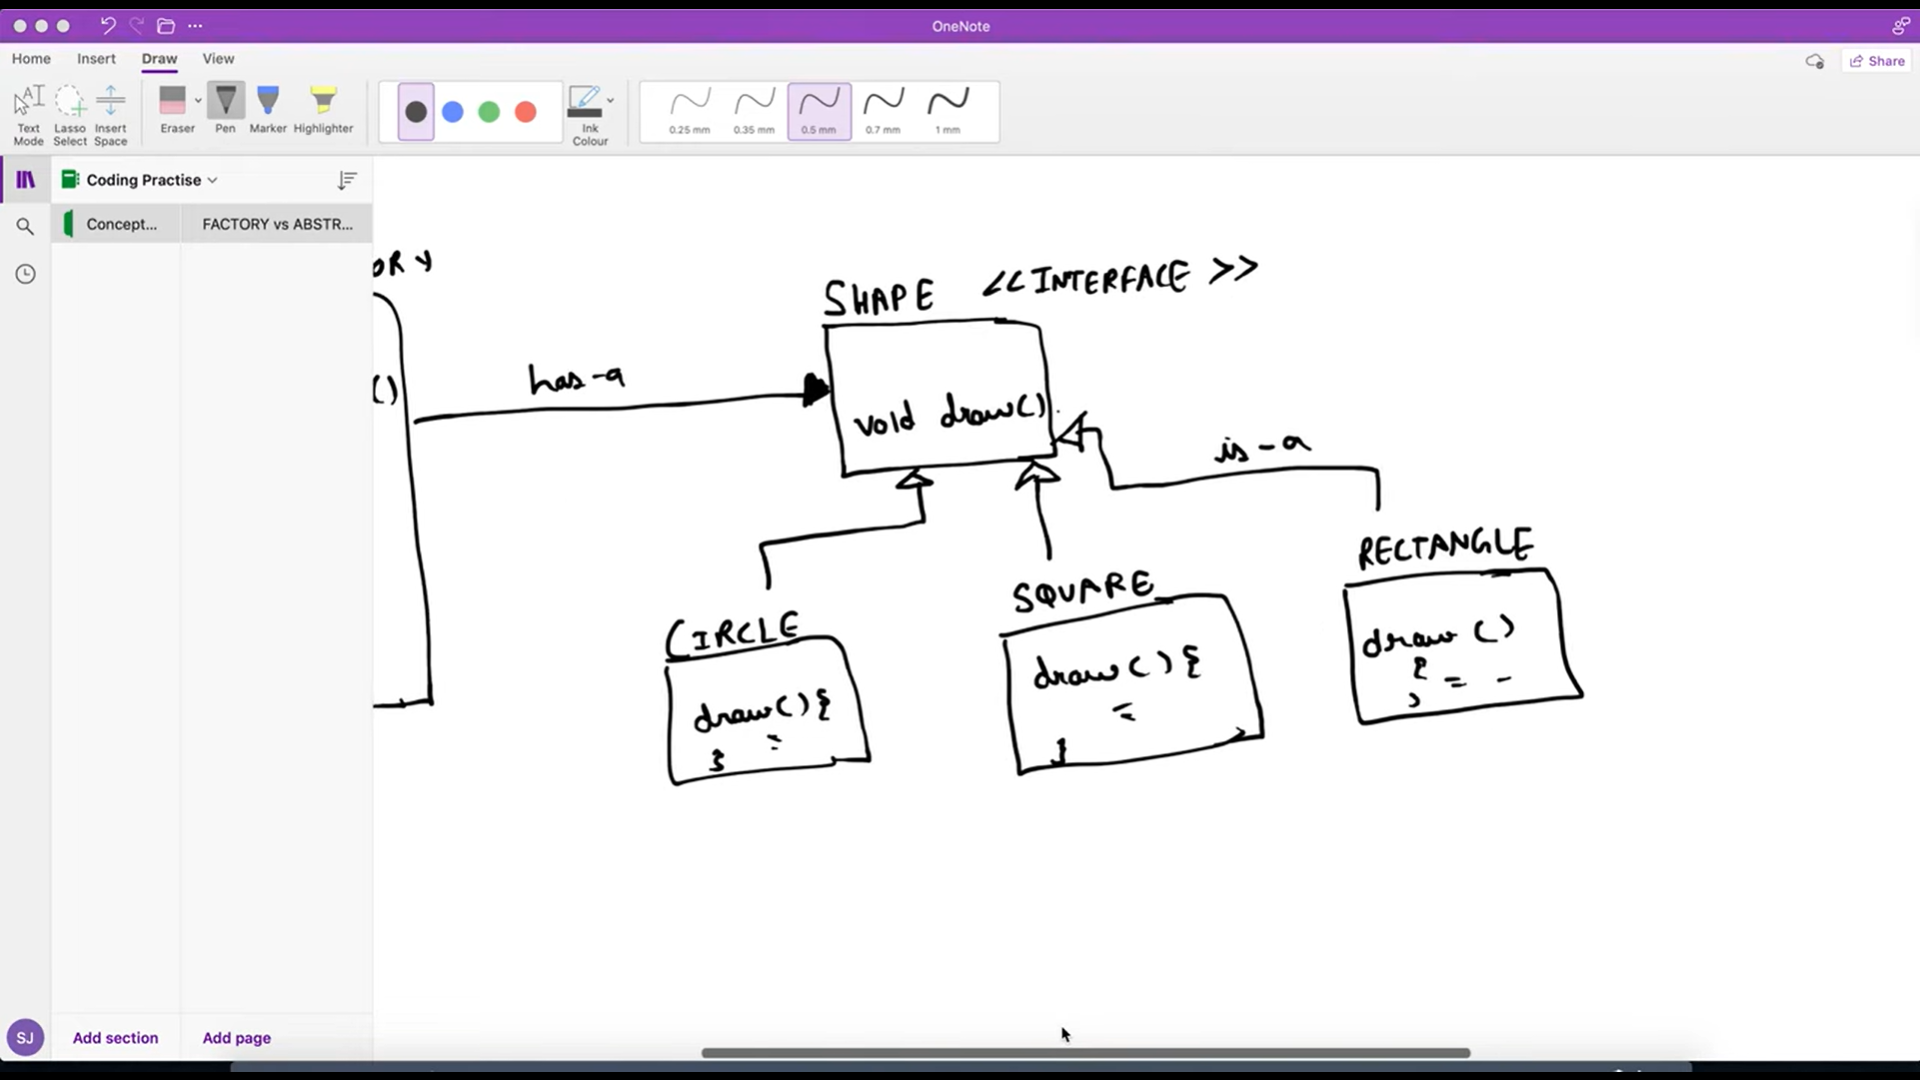 OneNote
Home Insert Draw View
Share
Text Mode
Lasso Select
Insert Space
Eraser
Pen
Marker
Highlighter
Ink Colour
0.25 mm
0.35 mm
0.5 mm
0.7 mm
1 mm
Coding Practise
Concept...
FACTORY vs ABSTR...
ORY
SHAPE <<INTERFACE>>
()
has-a
void draw()
is-a
RECTANGLE
draw ()
{
}
SQUARE
draw() {
}
CIRCLE
draw() {
}
SJ
Add section
Add page